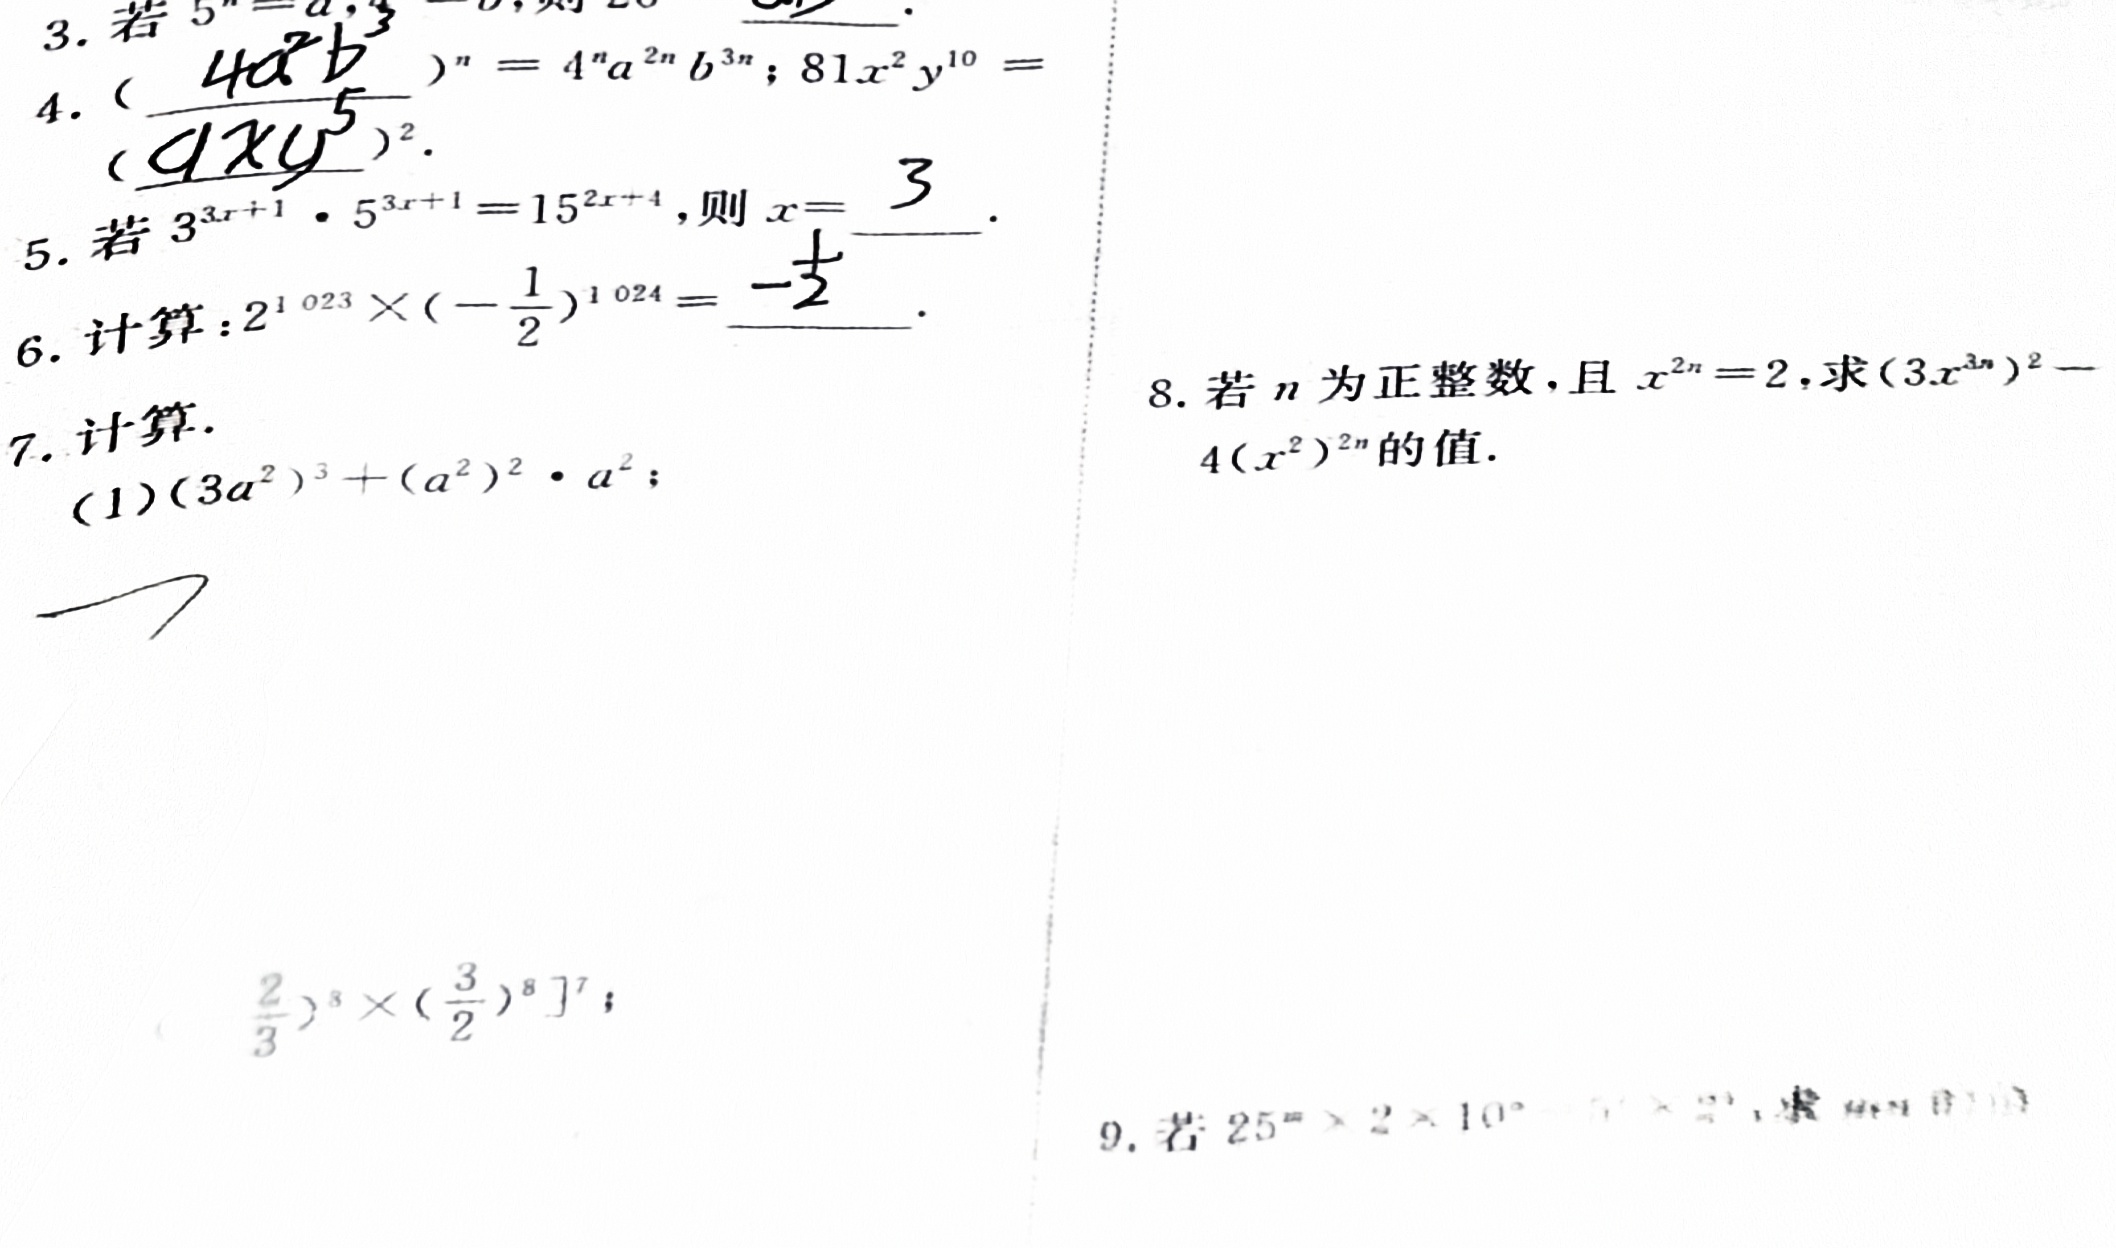 3. 若 5ⁿ = a,
4. ( 4a²b³ )ⁿ = 4ⁿa²ⁿb³ⁿ; 81x²y¹⁰ =
( 9xy⁵ )².
5. 若 3³ˣ⁺¹ · 5³ˣ⁺¹ = 15²ˣ⁺⁴, 则 x = 3 .
6. 计算: 2¹ ⁰²³ × (-1/2)¹ ⁰²⁴ = -1/2 .
7. 计算.
(1) (3a²)³ + (a²)² · a²;
2/3)⁸ × (3/2)⁸]⁷;
8. 若 n 为正整数, 且 x²ⁿ = 2, 求(3x³ⁿ)² -
4(x²)²ⁿ 的值.
9. 若 25ᵐ × 2 × 10 , 求